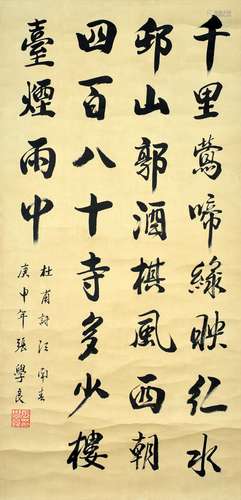 千里鶯啼綠映红水
邨山郭酒棋風西朝
四百八十寺多少樓
臺煙雨中
杜甫詩江南春
庚申年張學良